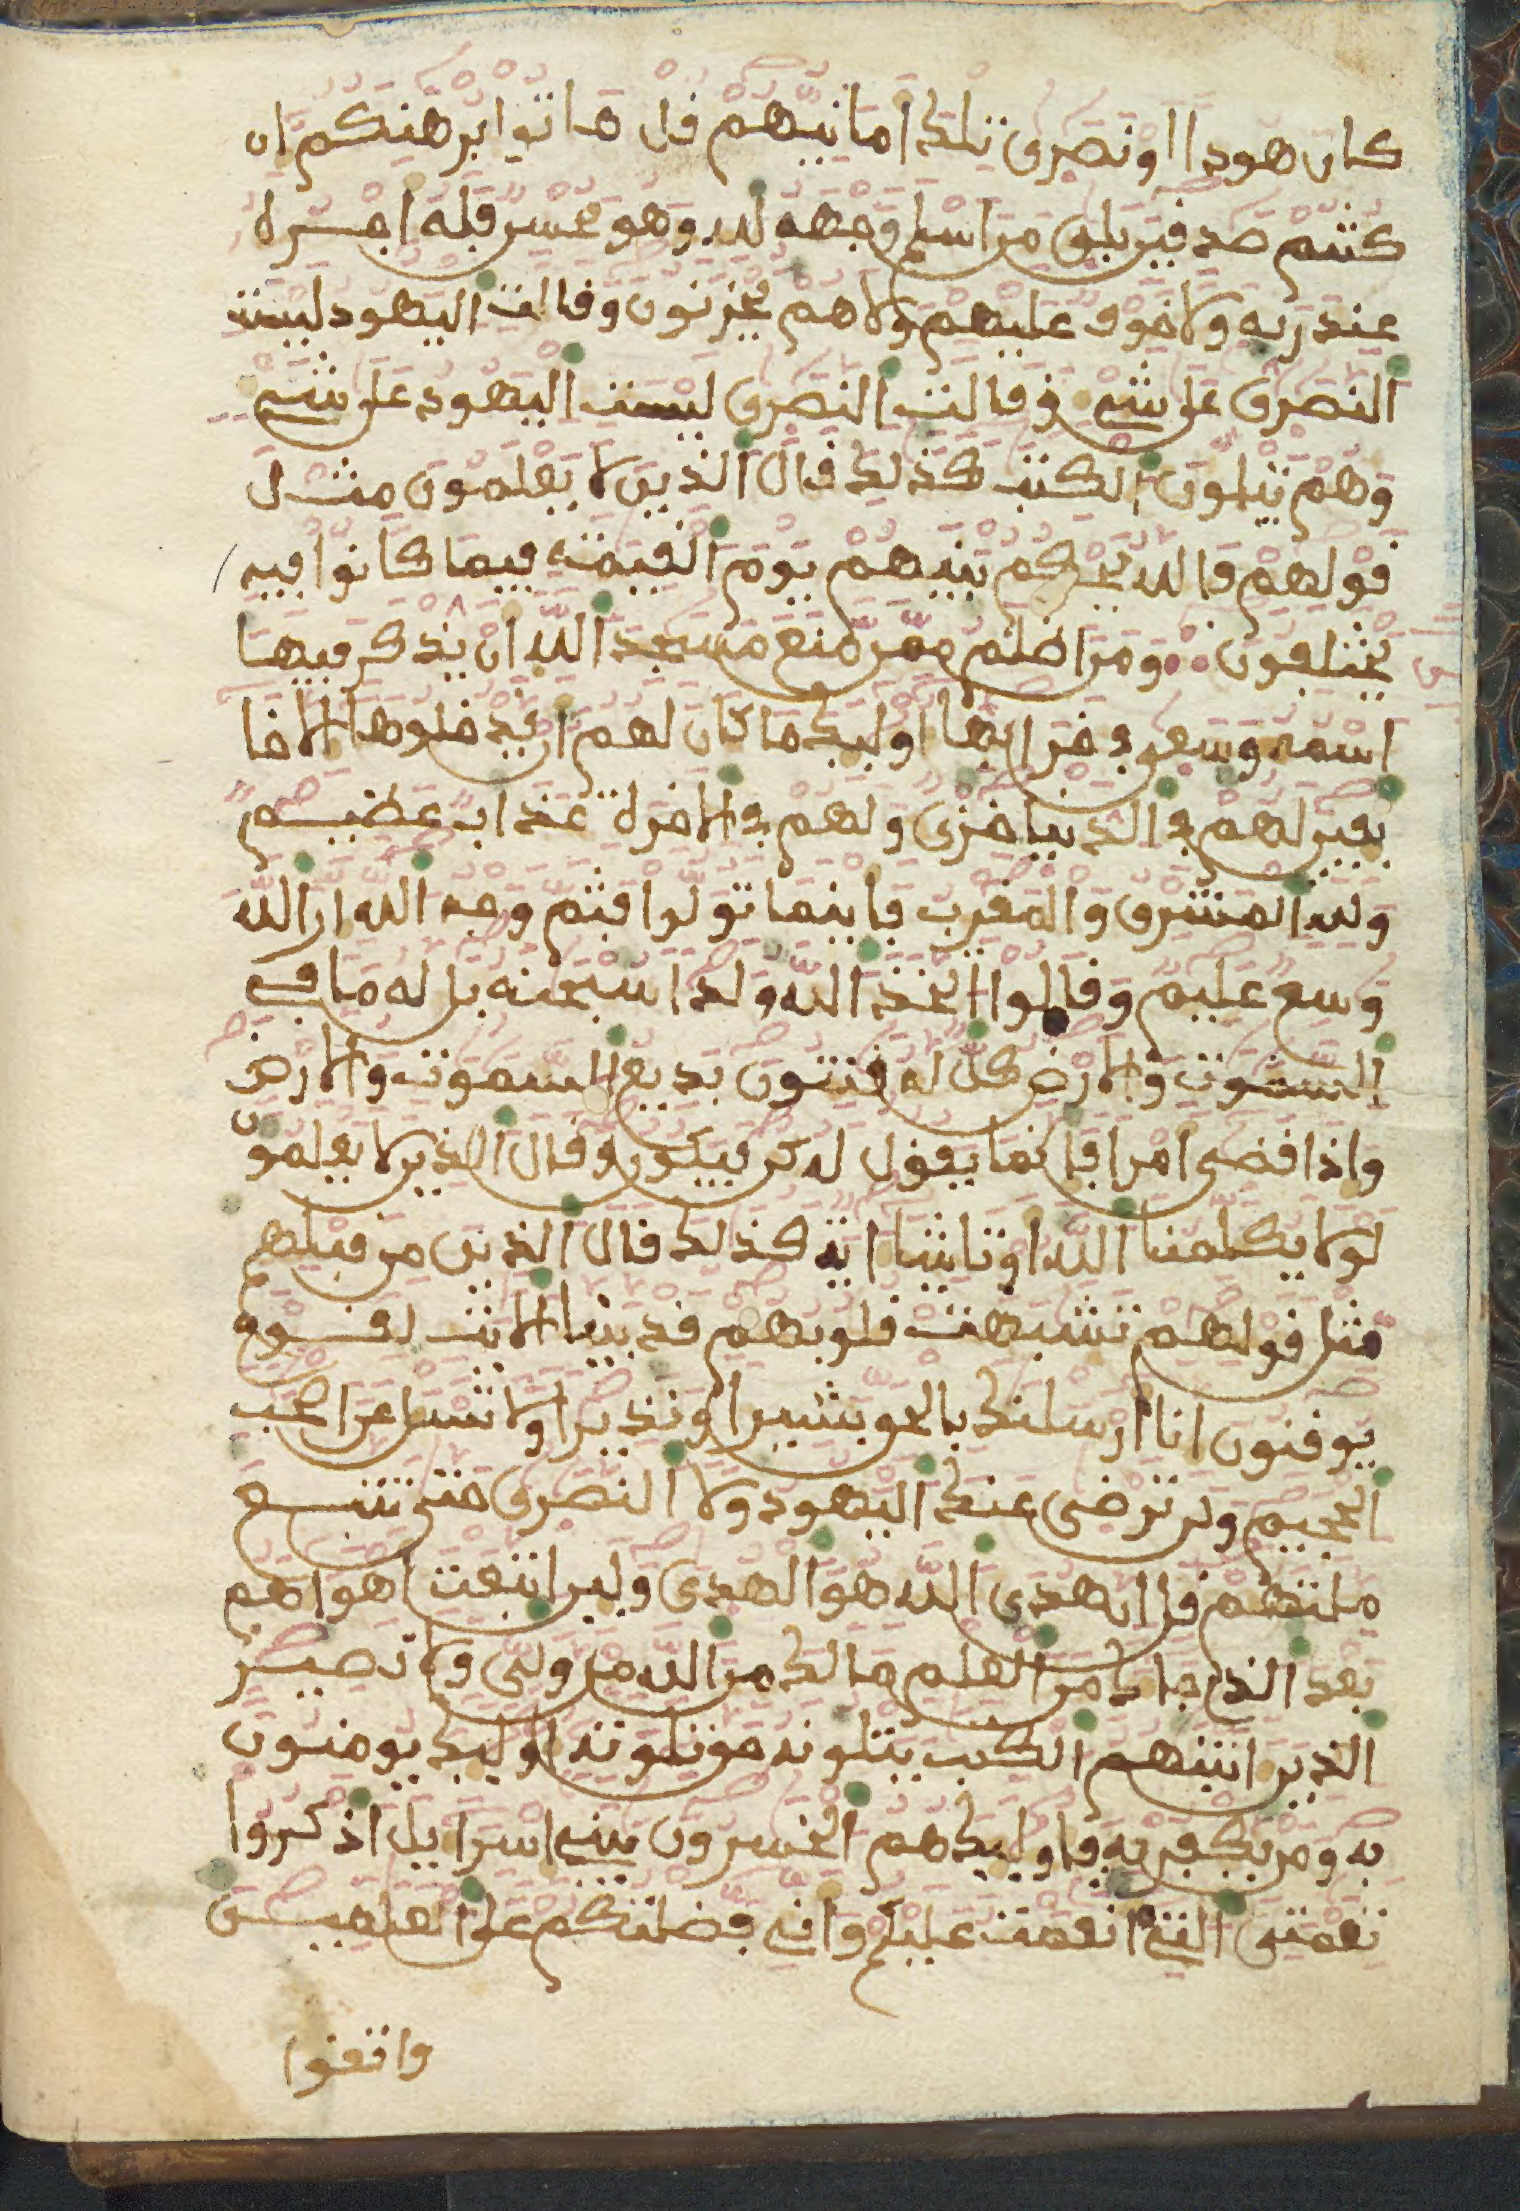 كان هودا او نصرى تلك امانيهم قل هاتوا برهنكم ان
كنتم صدقين بلى من اسلم وجهه لله وهو محسن فله اجره
عند ربه ولا خوف عليهم ولا هم يحزنون وقالت اليهود ليست
النصرى على شيء وقالت النصرى ليست اليهود على شيء
وهم يتلون الكتب كذلك قال الذين لا يعلمون مثل
قولهم فالله يحكم بينهم يوم القيمة فيما كانوا فيه
يختلفون ومن اظلم ممن منع مسجد الله ان يذكر فيها
اسمه وسعى في خرابها اوليك ما كان لهم ان يدخلوها الا خا
يفين لهم في الدنيا خزي ولهم في الاخرة عذاب عظيم
ولله المشرق والمغرب فاينما تولوا فثم وجه الله ان الله
وسع عليم وقالوا اتخذ الله ولدا سبحنه بل له ما في
السموت والارض كل له قنتون بديع السموت والارض
واذا قضى امرا فانما يقول له كن فيكون وقال الذين لا يعلمون
لولا يكلمنا الله او تاتينا اية كذلك قال الذين من قبلهم
مثل قولهم تشبهت قلوبهم قد بينا الايت لقوم
يوقنون انا ارسلنك بالحق بشيرا ونذيرا ولا تسل عن اصحب
الجحيم ولن ترضى عنك اليهود ولا النصرى حتى تتبع
ملتهم قل ان هدى الله هو الهدى ولين اتبعت اهواهم
بعد الذي جاك من العلم ما لك من الله من ولي ولا نصير
الذين اتينهم الكتب يتلونه حق تلوته اوليك يومنون
به ومن يكفر به فاوليك هم الخسرون يبني اسرايل اذكروا
نعمتي التي انعمت عليكم واني فضلتكم على العلمين
واتقوا